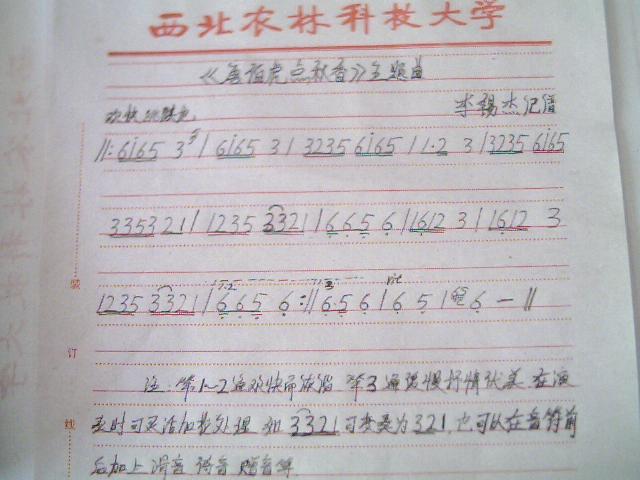 西北农林科技大学
《唐伯虎点秋香》主题曲
欢快 跳跃
李锡杰记谱
‖: 6i65 3 | 6i65 3 | 3235 6i65 | 1·2 3 | 3235 6i65
3353 21 | 1235 3321 | 6 6 5 6 | 1612 3 | 1612 3
1235 3321 | 6 6 5 6 :‖ 6 5 6 | 6 5 | 6 — ‖
装
注: 第1~2遍欢快而 第3遍 慢抒情优美 在演
订
奏时可灵活加 处理 如 3321 可变奏为 321, 也可以在音符前
线
后加上滑音